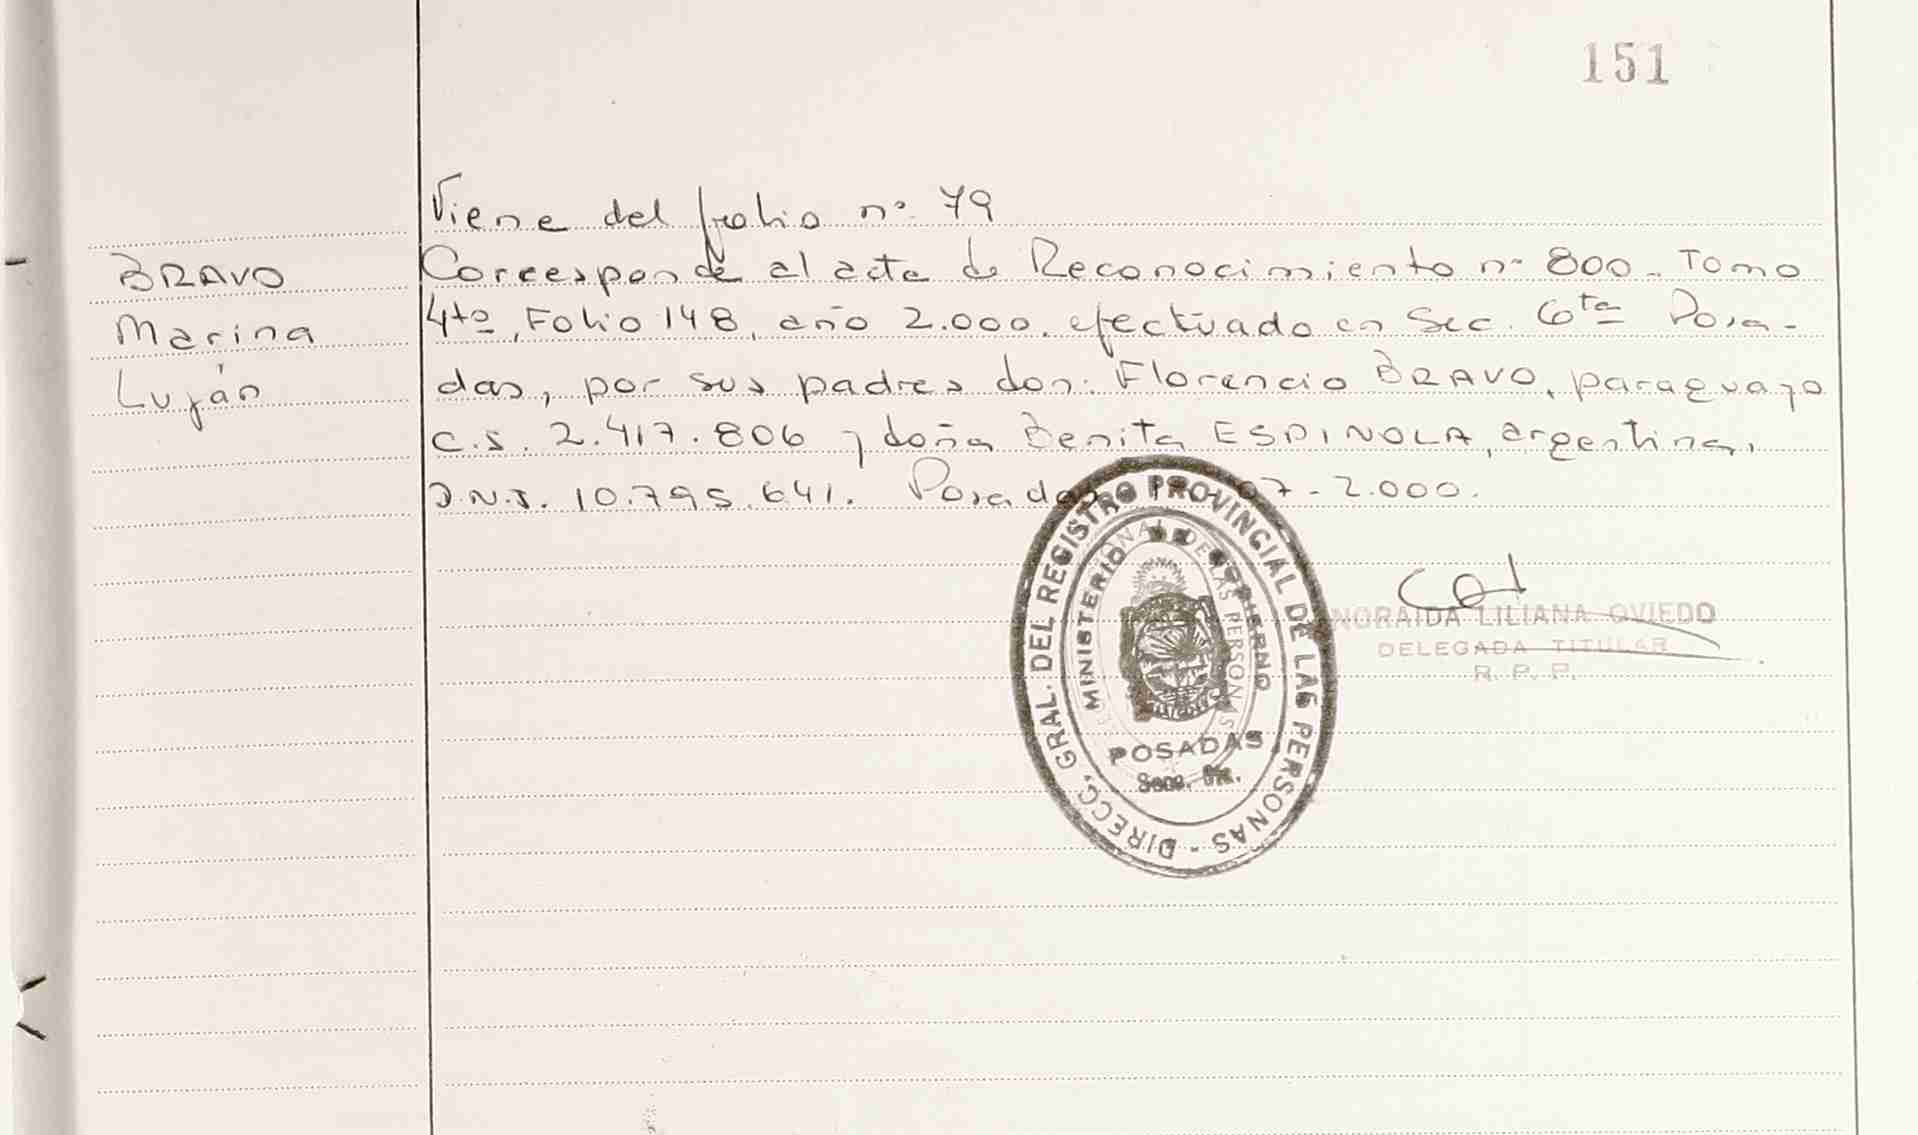 151
Viene del folio nº 79
BRAVO
Marina
Luján
Corresponde al acta de Reconocimiento nº 800 - Tomo
4to, Folio 148, año 2.000. efectuado en Sec. 6ta Posa-
das, por sus padres don: Florencio BRAVO, paraguayo
C.I. 2.417.806 y doña Benita ESPINOLA, argentina,
D.N.I. 10.795.641. Posadas 07-2.000.
DIRECC. GRAL. DEL REGISTRO PROVINCIAL DE LAS PERSONAS -
MINISTERIO DE GOBIERNO
DE LAS PERSONAS
POSADAS
Secc.
NORAIDA LILIANA OVIEDO
DELEGADA TITULAR
R. P. P.